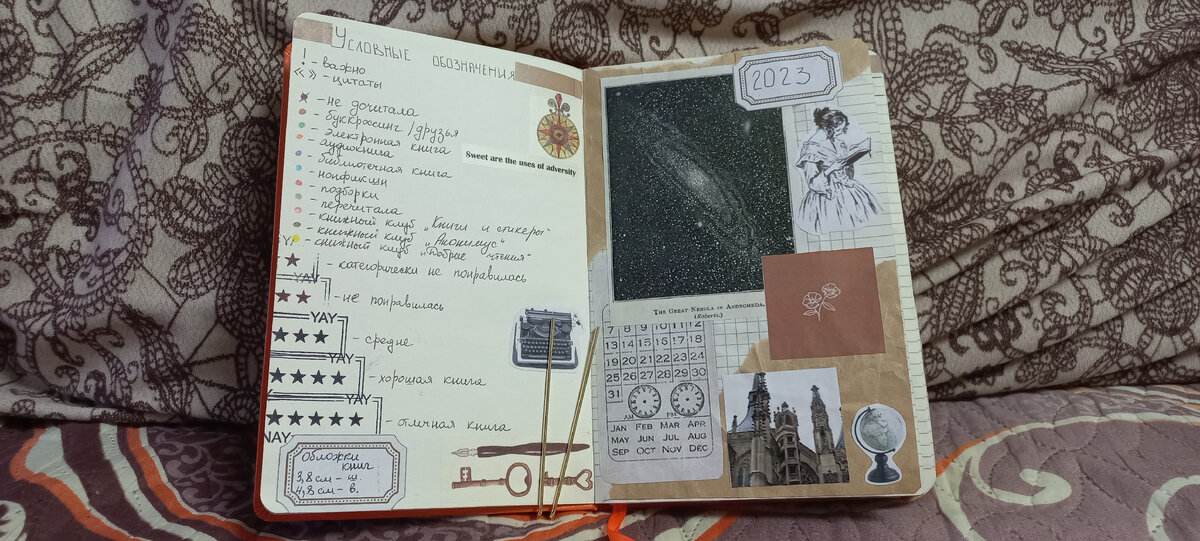 Условные обозначения
! - важно
« » - цитаты
- не дочитала
- буккросинг/друзья
- электронная книга
- аудиокнига
- библиотечная книга
- нонфикшн
- подборки
- перечитала
- книжный клуб „Книги и стикеры"
- книжный клуб „Анонимус"
- книжный клуб „Добрые чтения"
- категорически не понравилась
YAY
- не понравилась
YAY
- средне
YAY
- хорошая книга
YAY
- отличная книга
NAY
Обложки
книг
3,8 см - ш.
4,8 см - в.
Sweet are the uses of adversity
2023
The Great Nebula in Andromeda.
(Roberts.)
7 8 9 10 11 12
13 14 15 16 17 18
19 20 21 22 23 24
25 26 27 28 29 30
31
AM PM
JAN FEB MAR APR
MAY JUN JUL AUG
SEP OCT NOV DEC